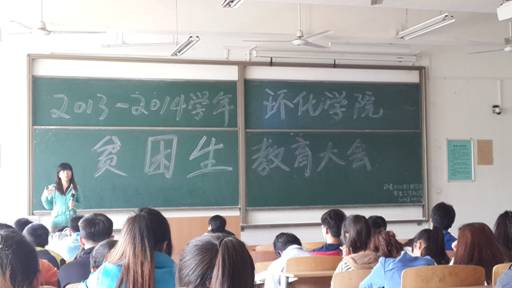 2013-2014学年 环化学院
贫困生 教育大会